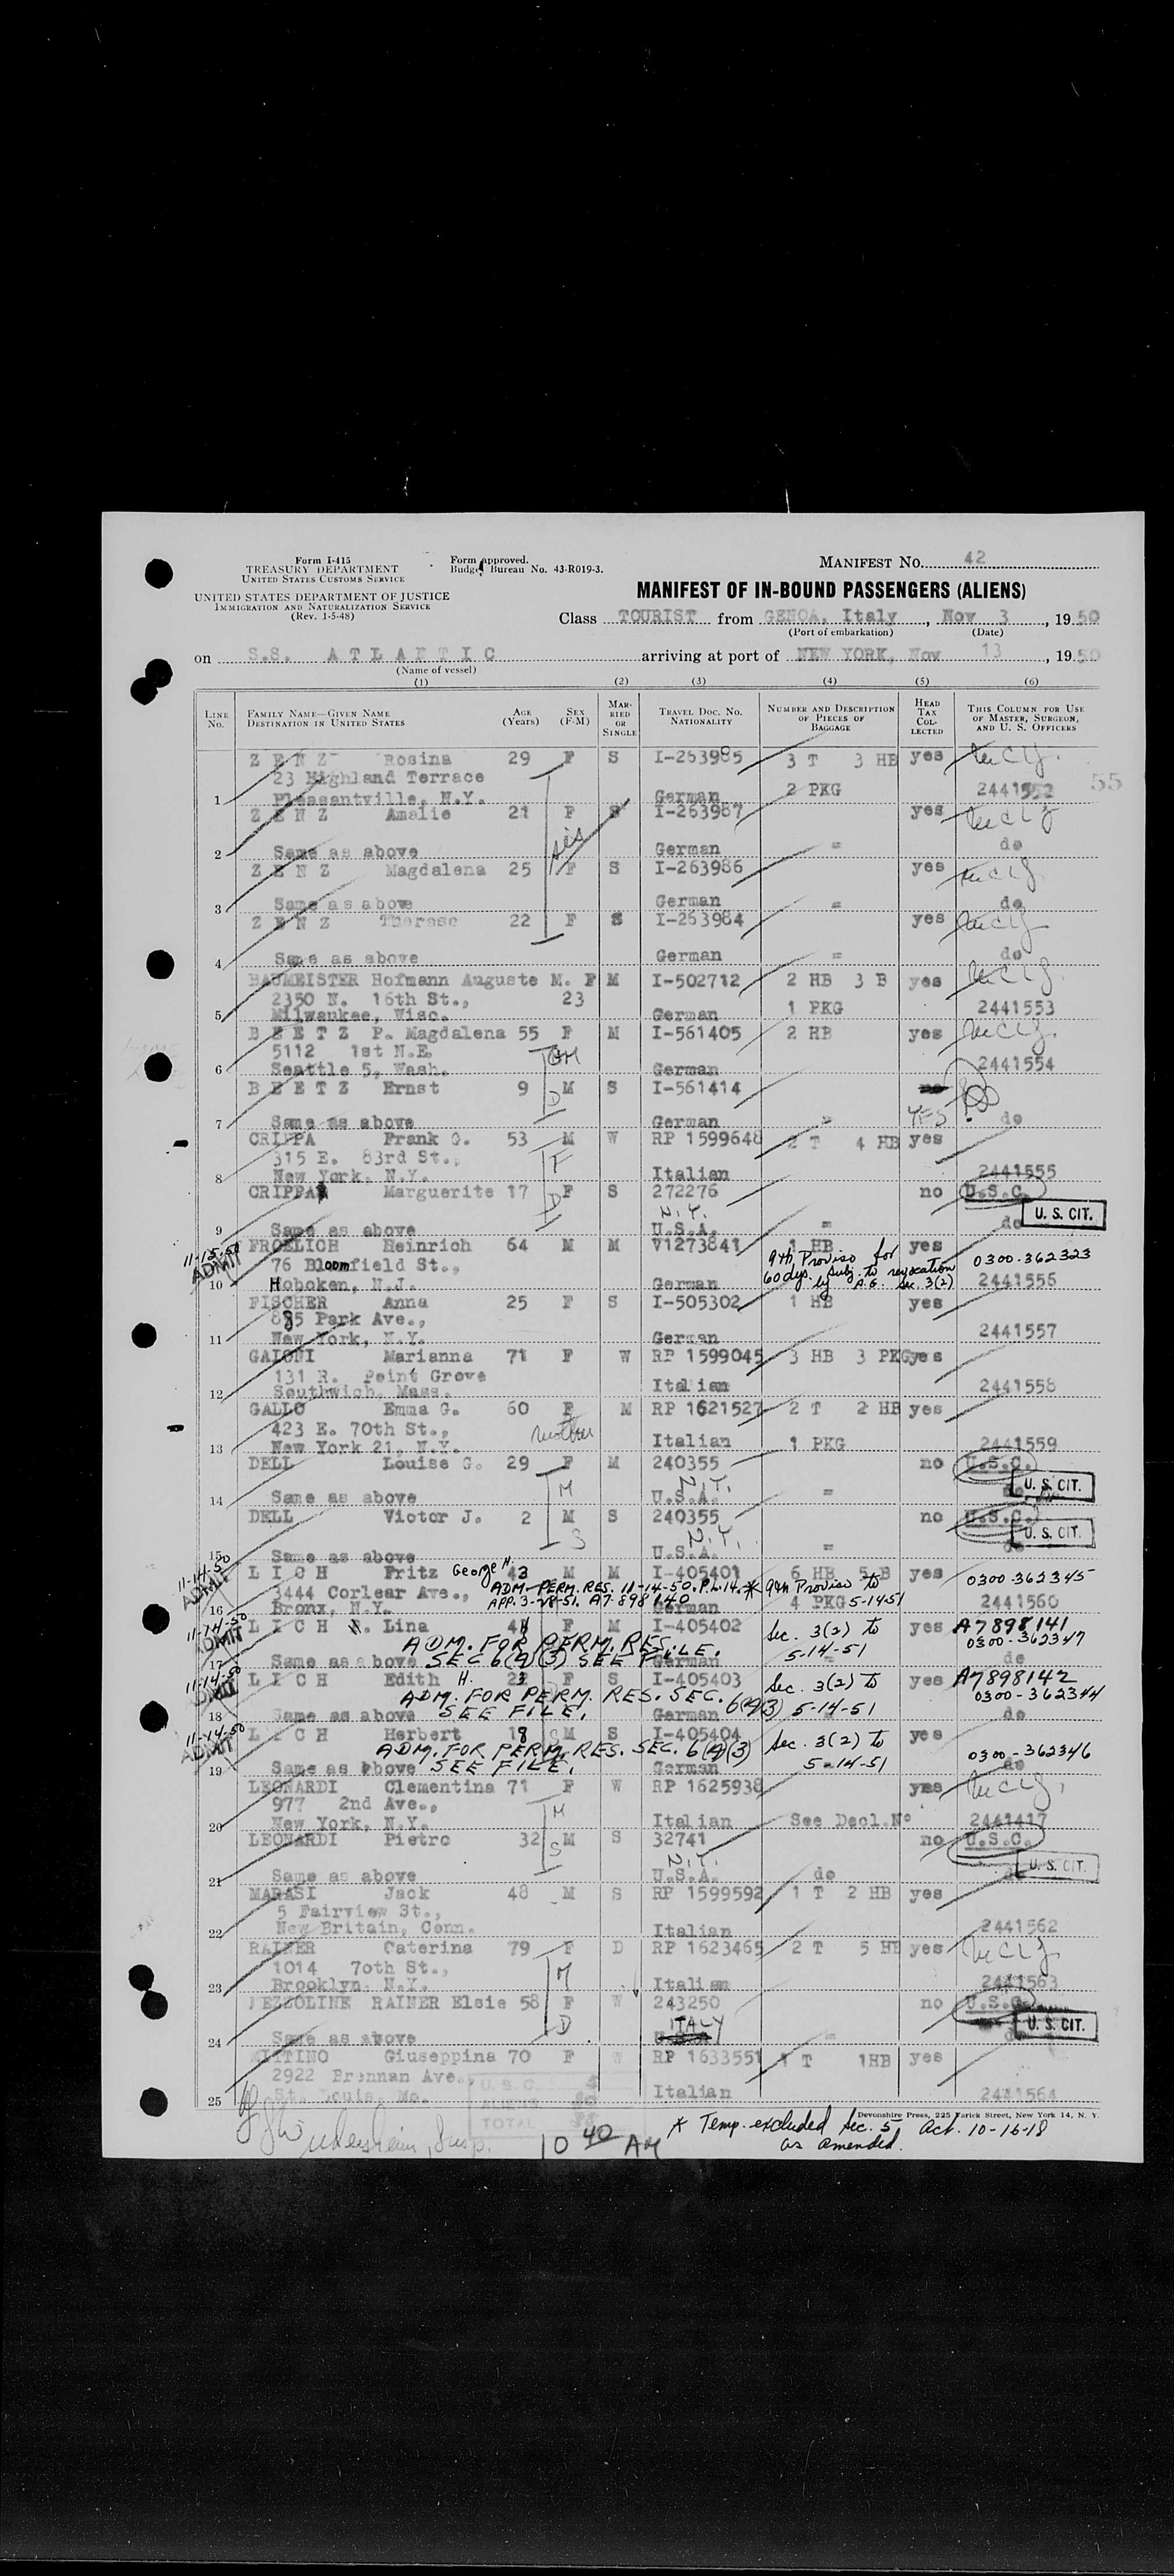 Form I-415
TREASURY DEPARTMENT
UNITED STATES CUSTOMS SERVICE
UNITED STATES DEPARTMENT OF JUSTICE
IMMIGRATION AND NATURALIZATION SERVICE
(Rev. 1-5-48)
Form approved.
Budget Bureau No. 43-R019-3.
MANIFEST No. 42
MANIFEST OF IN-BOUND PASSENGERS (ALIENS)
Class TOURIST from GENOA, Italy, Nov 3, 1950
(Port of embarkation) (Date)
on S.S. ATLANTIC arriving at port of NEW YORK, Nov 13, 1950
(Name of vessel)
(1) (2) (3) (4) (5) (6)
LINE No. FAMILY NAME—GIVEN NAME DESTINATION IN UNITED STATES AGE (Years) SEX (F-M) MARRIED OR SINGLE TRAVEL DOC. NO. NATIONALITY NUMBER AND DESCRIPTION OF PIECES OF BAGGAGE HEAD TAX COLLECTED THIS COLUMN FOR USE OF MASTER, SURGEON, AND U. S. OFFICERS
ZENZ Rosina 29 F S I-263985 3 T 3 HB yes
23 Highland Terrace 2 PKG 2441552 55
1 Pleasantville, N.Y. German
ZENZ Amalie 21 F S I-263987 yes
sis
2 Same as above German = do
ZENZ Magdalena 25 F S I-263986 yes
3 Same as above German = do
ZENZ Therese 22 F S I-263984 yes
4 Same as above German = do
BAUMEISTER Hofmann Auguste M. F M I-502712 2 HB 3 B yes
2350 N. 16th St., 23 1 PKG 2441553
5 Milwaukee, Wisc. German
BEETZ P. Magdalena 55 F M I-561405 2 HB yes
5112 1st N.E. GM
6 Seattle 5, Wash. German 2441554
BEETZ Ernst 9 M S I-561414
D YES
7 Same as above German = do
CRIPPA Frank G. 53 M W RP 1599648 2 T 4 HB yes
315 E. 83rd St., F
8 New York, N.Y. Italian 2441555
CRIPPA Marguerite 17 F S 272276 no U.S.C.
D N.Y. U. S. CIT.
9 Same as above U.S.A. = do
11-15-50 ADMIT
FROELICH Heinrich 64 M M V1273841 1 HB yes
76 Bloomfield St., 9th Proviso for 60 dys. subj. to revocation by A.G. Sec. 3(2) 0300-362323
10 Hoboken, N.J. German 2441556
FISCHER Anna 25 F S I-505302 1 HB yes
885 Park Ave.,
11 New York, N.Y. German 2441557
GAIONI Marianna 71 F W RP 1599045 3 HB 3 PKG yes
131 R. Point Grove
12 Southwich, Mass. Italian 2441558
GALLO Emma G. 60 F M RP 1621527 2 T 2 HB yes
423 E. 70th St., mother
13 New York 21, N.Y. Italian 1 PKG 2441559
DELL Louise G. 29 F M 240355 no U.S.C.
M N.Y. U. S. CIT.
14 Same as above U.S.A. =
DELL Victor J. 2 M S 240355 no U.S.C.
S N.Y. U. S. CIT.
15 Same as above U.S.A. = do
11-14-50 ADMIT
LICH Fritz George H. 43 M M I-405401 6 HB 5 B yes 0300-362345
3444 Corlear Ave., ADM. PERM. RES. 11-14-50. P.L. 14. * 9th Proviso to
16 Bronx, N.Y. APP. 3-28-51. A7-898140 German 4 PKG 5-14-51 2441560
11-14-50 ADMIT
LICH H. Lina M I-405402 Sec. 3(2) to yes A7898141
ADM. FOR PERM. RES. 5-14-51 0300-362347
17 Same as above SEC 6(A)(3) SEE FILE. German do
11-14-50 ADMIT
LICH Edith H. 23 F S I-405403 Sec. 3(2) to yes A7898142
ADM. FOR PERM. RES. SEC. 6(A)(3) 5-14-51 0300-362344
18 Same as above SEE FILE. German do
11-14-50 ADMIT
LICH Herbert 18 M S I-405404 Sec. 3(2) to yes
ADM. FOR PERM. RES. SEC. 6(A)(3) 5-14-51 0300-362346
19 Same as above SEE FILE. German do
LEONARDI Clementina 71 F W RP 1625938 yes
977 2nd Ave., M
20 New York, N.Y. Italian See Decl. No 2441417
LEONARDI Pietro 32 M S 32741 no U.S.C.
S N.Y. U. S. CIT.
21 Same as above U.S.A. do
MARASI Jack 48 M S RP 1599592 1 T 2 HB yes
5 Fairview St.,
22 New Britain, Conn. Italian 2441562
RAINER Caterina 79 F D RP 1623465 2 T 5 HB yes
1014 70th St., M
23 Brooklyn, N.Y. Italian 2441563
RAINER Elsie 58 F W 243250 no U.S.C.
D ITALY U. S. CIT.
24 Same as above =
Giuseppina 70 F W RP 1633551 1 T 1HB yes
2922 Brennan Ave.
25 St. Louis, Mo. Italian 2441564
U.S.C.
ALIENS
TOTAL
Devonshire Press, 225 Varick Street, New York 14, N. Y.
10 40 AM
* Temp. excluded Sec. 5 Act. 10-16-18
as amended.